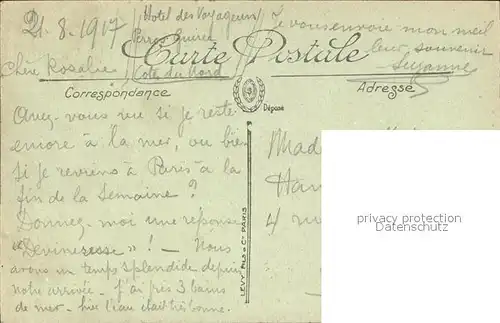 21.8.1917
Hôtel des Voyageurs
Perros Guirec
Côte du Nord
Je vous envoie mon meil
leur souvenir
Suzanne
Carte Postale
Chère Rosalie
Correspondance
Adresse
Déposé
Avez-vous vu si je reste
encore à la mer, ou bien
si je reviens à Paris à la
fin de la semaine?
Donnez-moi une réponse
"Devineresse"! - Nous
avons un temps splendide depuis
notre arrivée - j'ai pris 3 bains
de mer - hier l'eau était très bonne.
LEVY FILS & Cie PARIS
Mad
4
privacy protection
Datenschutz